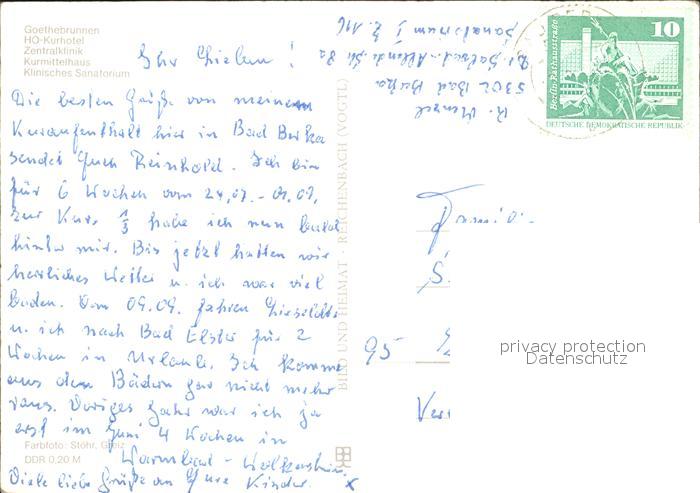 Goethebrunnen
HO-Kurhotel
Zentralklinik
Kurmittelhaus
Klinisches Sanatorium
Ihr Lieben!
Die besten Grüße von meinem
Kuraufenthalt hier in Bad Berka
sendet Euch Reinhold. Ich bin
für 6 Wochen vom
zur Kur. 1/3 habe ich nun bald
hinter mir. Bis jetzt hatten wir
herrliches Wetter u. ich war viel
baden. Vom 09.09. fahren
u. ich nach Bad Elster für 2
Wochen in Urlaub. Ich komme
aus den Bädern gar nicht mehr
raus. Voriges Jahr war ich ja
erst im Juni 4 Wochen in
Warmbad-Wolkenstein.
Viele liebe Grüße an Eure Kinder.
Farbfoto: Stöhr, Greiz
DDR 0,20 M
BILD UND HEIMAT · REICHENBACH (VOGTL)
R. Menzel
5302 Bad Berka
Sanatorium I Z. 116
10
Berlin-Rathausstraße
DEUTSCHE DEMOKRATISCHE REPUBLIK
Familie
S
95
privacy protection
Datenschutz